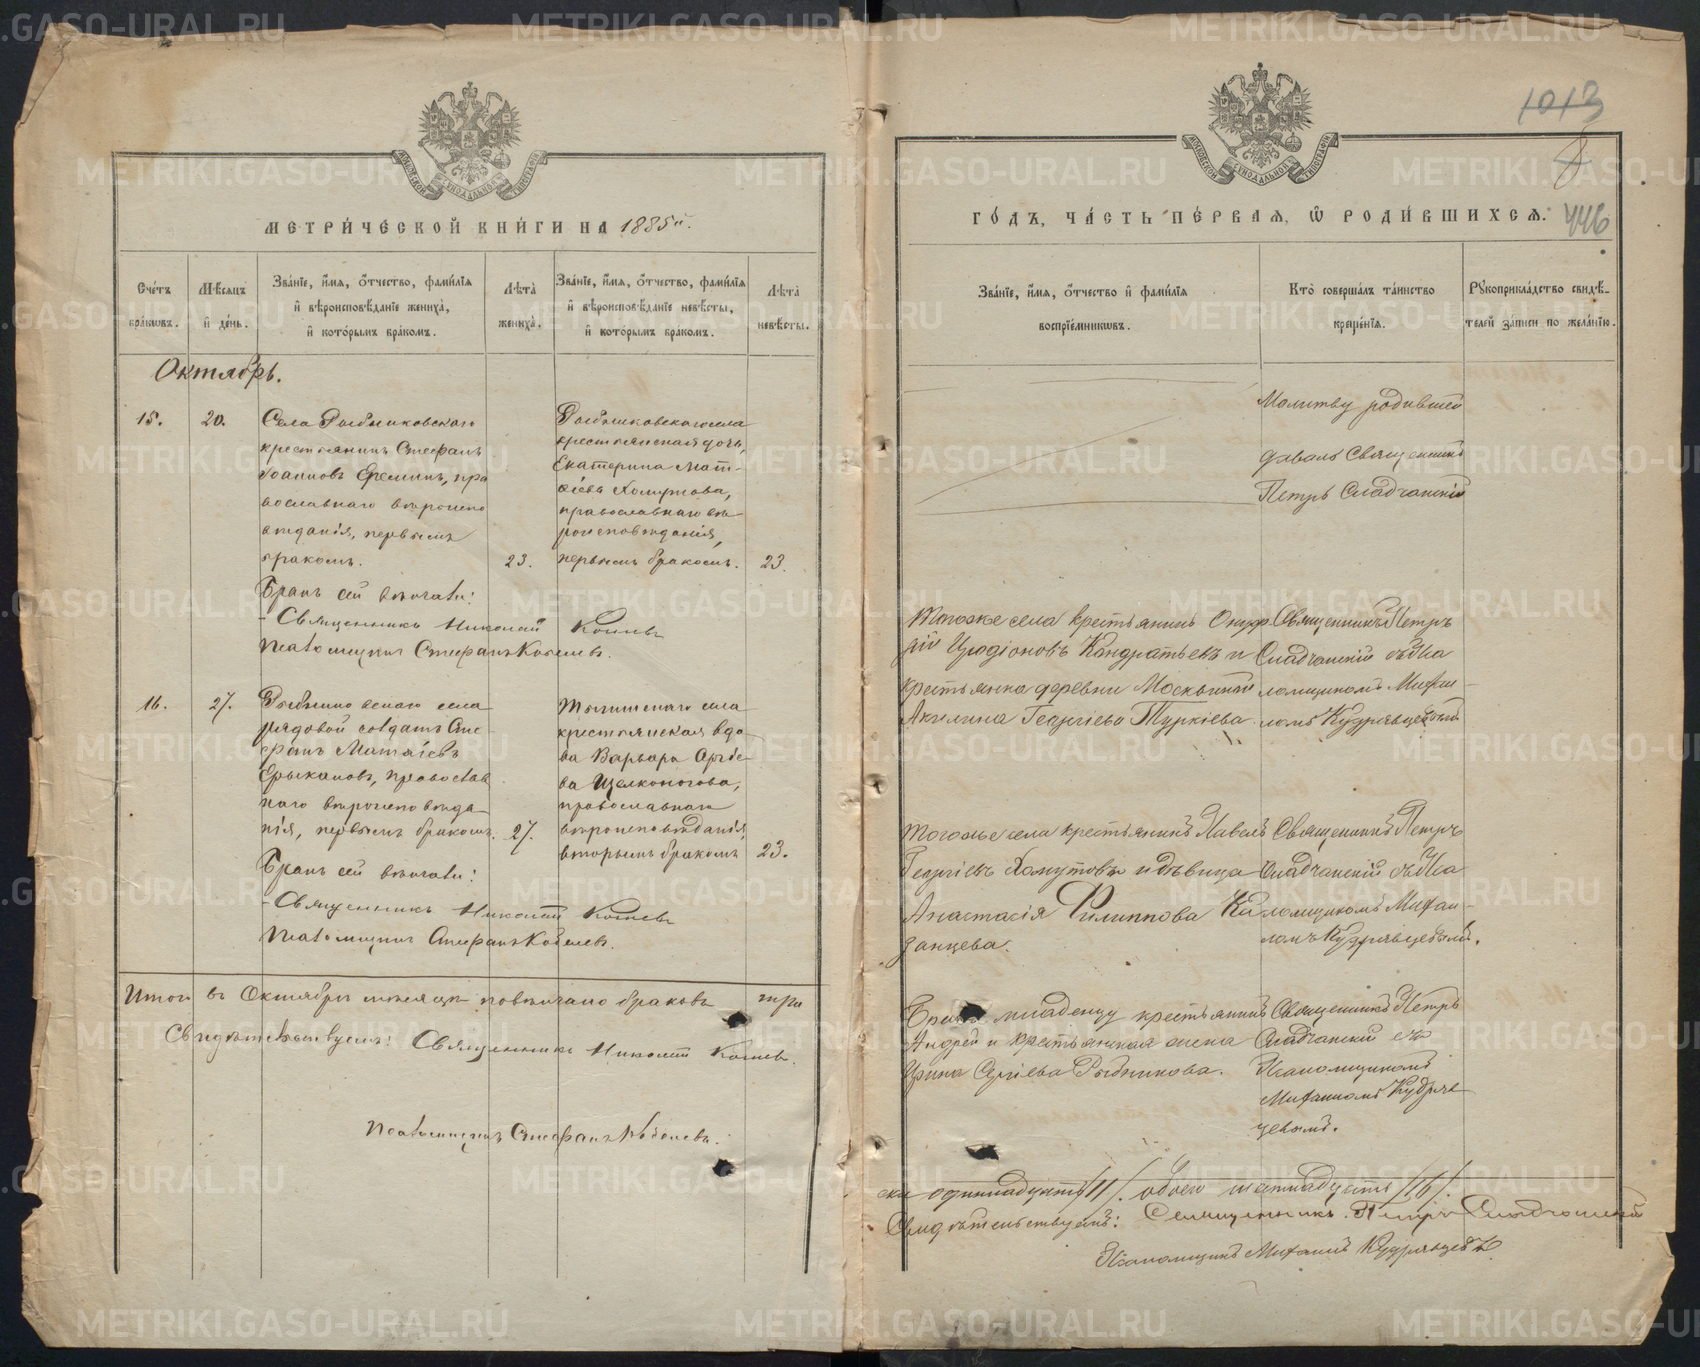 МЕТРИ́ЧЕСКОЙ КНИ́ГИ НА 1885й.
Сче́тъ бра́ковъ.
Мѣ́сяцъ и де́нь.
Зва́нїе, и́мя, ѻ́тчество, фами́лїя и вѣроисповѣ́данїе жениха̀, и кото́рымъ бра́комъ.
Лѣта̀ жениха̀.
Зва́нїе, и́мя, ѻ́тчество, фами́лїя и вѣроисповѣ́данїе невѣ́сты, и кото́рымъ бра́комъ.
Лѣта̀ невѣ́сты.
Октябрь.
15.
20.
Села Рыбниковскаго
крестьянинъ Стефанъ
Іоанновъ Ереминъ, пра
вославнаго вѣроиспо
вѣданія, первымъ
бракомъ.
23.
Рыбниковскаго села
крестьянская дочь,
Екатерина Мат-
ѳіева Хомутова,
православнаго вѣ-
роисповѣданія,
первымъ бракомъ.
23.
Бракъ сей вѣнчали:
Священникъ Николай
Псаломщикъ Стефанъ Кобелевъ.
16.
27.
Рыбниковскаго села
рядовой солдатъ Сте
фанъ Матѳіевъ
православ
наго вѣроисповѣда
нія, первымъ бракомъ.
27.
села
крестьянская вдо
ва Варвара
ва Щелконогова,
православнаго
вѣроисповѣданія
вторымъ бракомъ
23.
Бракъ сей вѣнчали:
Священникъ Николай
Псаломщикъ Стефанъ Кобелевъ.
Итого въ Октябрѣ мѣсяцѣ повѣнчано браковъ три
Свидѣтельствуемъ: Священникъ Николай
Псаломщикъ Стефанъ Кобелевъ.
1013
446
ГО́ДЪ, ЧА́СТЬ ПЕ́РВАЯ, Ѽ РОДИ́ВШИХСЯ.
Зва́нїе, и́мя, ѻ́тчество и фами́лїя воспрїе́мниковъ.
Кто̀ соверша́лъ та́инство креще́нїя.
Рукоприкла́дство свидѣ́телей за́писи по жела́нїю.
Молитву родившей
давалъ Священникъ
Петръ Сладчанскій
Тогоже села крестьянинъ Онуф
рій Иродіоновъ Кондратьевъ и
крестьянка деревни
Акилина Георгіева Туркіева.
Священникъ Петръ
Сладчанскій съ Пса
ломщикомъ Мифаи-
ломъ Кудрявцевымъ
Тогоже села крестьянинъ Павелъ
Георгіевъ Хомутовъ и дѣвица
Анастасія Филиппова Ка
занцева.
Священникъ Петръ
Сладчанскій съ Пса
ломщикомъ Мифаи-
ломъ Кудрявцевымъ.
младенцу крестьянинъ
Андрей и крестьянская жена
Ирина Сергіева Рыбникова.
Священникъ Петръ
Сладчанскій съ
Псаломщикомъ
Мифаиломъ Кудряв
цевымъ.
ска одиннадцать /11/. обоего шестнадцать /16/.
Свидѣтельствуемъ: Священникъ Петръ Сладчанскій
Псаломщикъ Мифаилъ Кудрявцевъ
METRIKI.GASO-URAL.RU